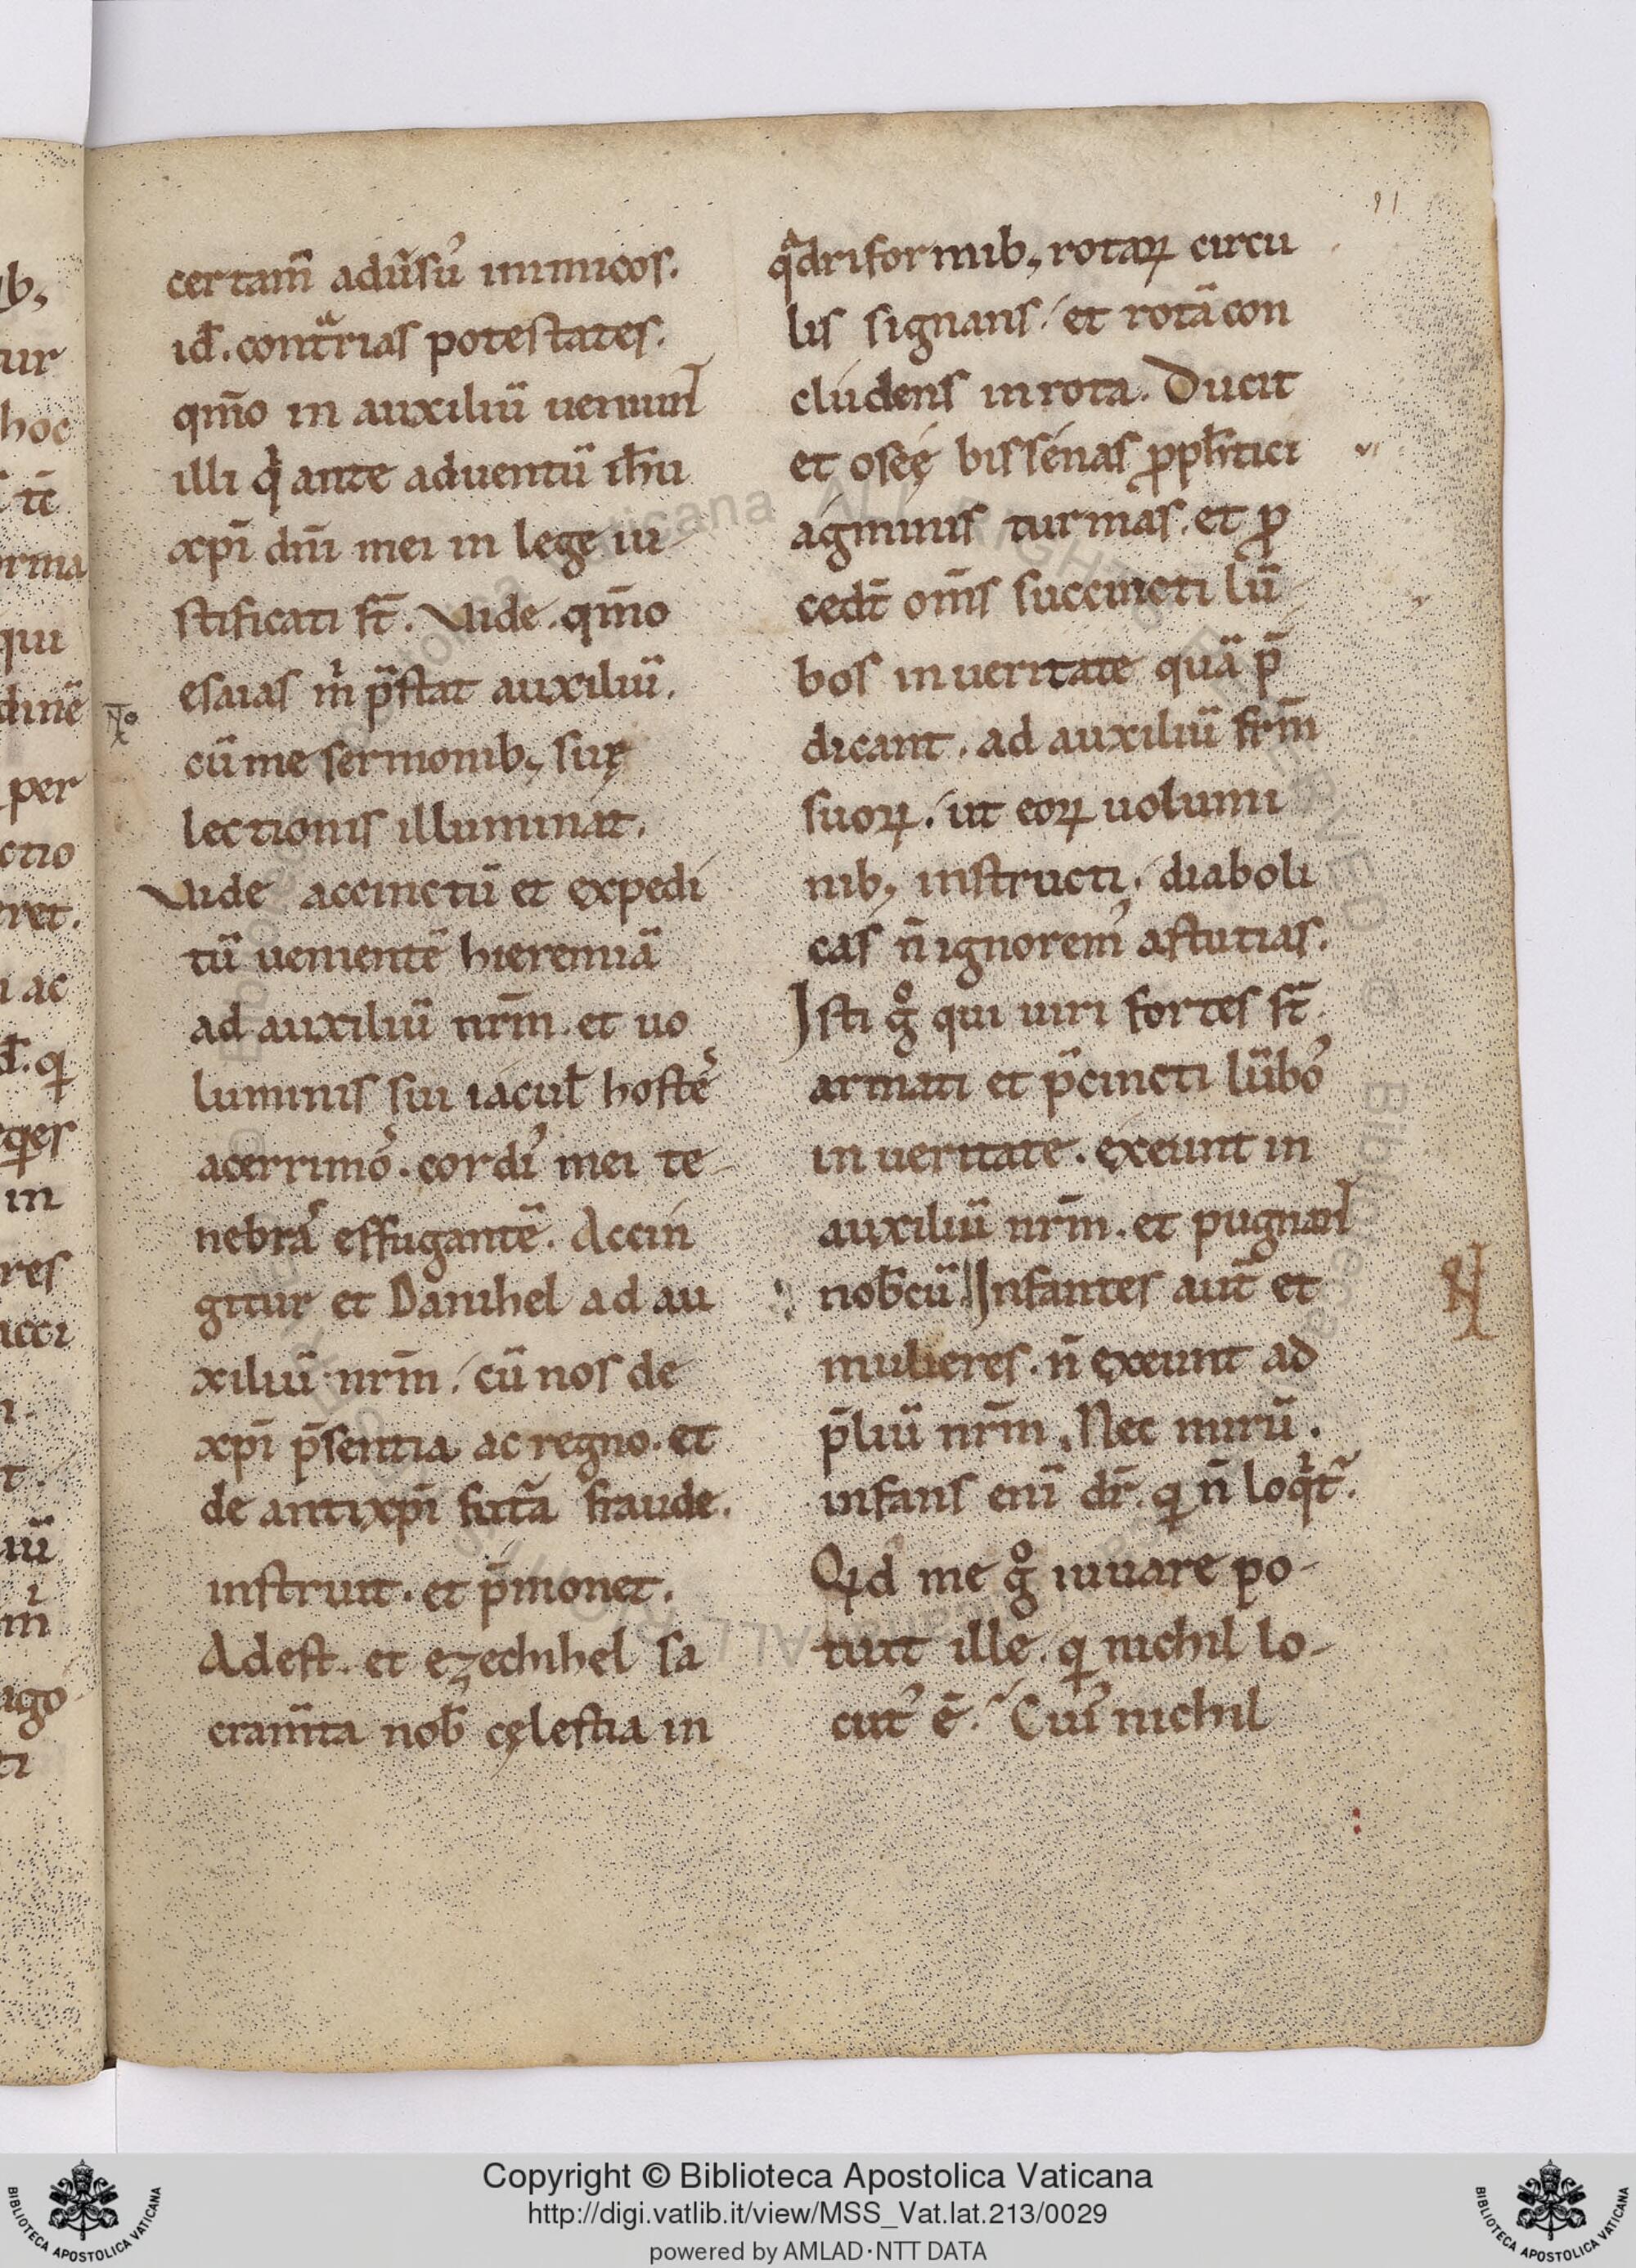 11
certam̅ adu̅su᾽ inimicos.
id̅. contᵃrias potestates.
qm̅o in auxiliu̅ ueniun̅
illi qⁱ ante aduentu̅ ih̅u
xp̅i dn̅i mei in lege iu
stificati st̅. Vide. qm̅o
esaias mⁱ p̅stat auxiliu̅.
cu̅ me sermonib; suę
lectionis illuminat.
Vide accinctu̅ et expedi
tu̅ ueniente̅ hieremia̅
ad auxiliu̅ nr̅m. et uo
luminis sui iacul̅ hoste᾽
acerrimo᾽. cordi᾽ mei te-
nebra᾽ effugante̅. Accin
gitur et Danihel ad au
xiliu̅ nr̅m, cu̅ nos de
xp̅i p̅sentia ac regno. et
de antixp̅i fut̅a fraude.
instruit. et p̅monet.
Adest. et ezechihel sa
cram̅ta nob̅ cęlestia in
qᵃdriformib; rotaꝝ circu
lis signans. et rota̅ con
cludens in rota. Ducit
et oseę bissenas ꝓph̅tici
agminis turmas. et ꝓ
cedt̅ om̅s succincti lu̅
bos in ueritate qua̅ p̅
dicant. ad auxiliu̅ fr̅m
suoꝝ. ut eoꝝ uolumi
nib; instructi. diaboli
cas n̅ ignorem᾽ astutias.
Isti gͦ qui uiri fortes st̅.
armati et p̅cincti lu̅bo᾽
in ueritate. exeunt in
auxiliu̅ nr̅m. et pugnan̅
nob̅cu̅. Infantes aut̅ et
mulieres. n̅ exeunt ad
p̅liu̅ nr̅m. Nec miru̅.
infans eni̅ dr̅. q n̅ loqⁱt᾽.
Qid me gͦ iuuare po-
tuit ille. q nichil lo-
cut᾽ e̅. Cui᾽ nichil
Copyright © Biblioteca Apostolica Vaticana
http://digi.vatlib.it/view/MSS_Vat.lat.213/0029
powered by AMLAD·NTT DATA
BIBLIOTECA APOSTOLICA VATICANA
BIBLIOTECA APOSTOLICA VATICANA